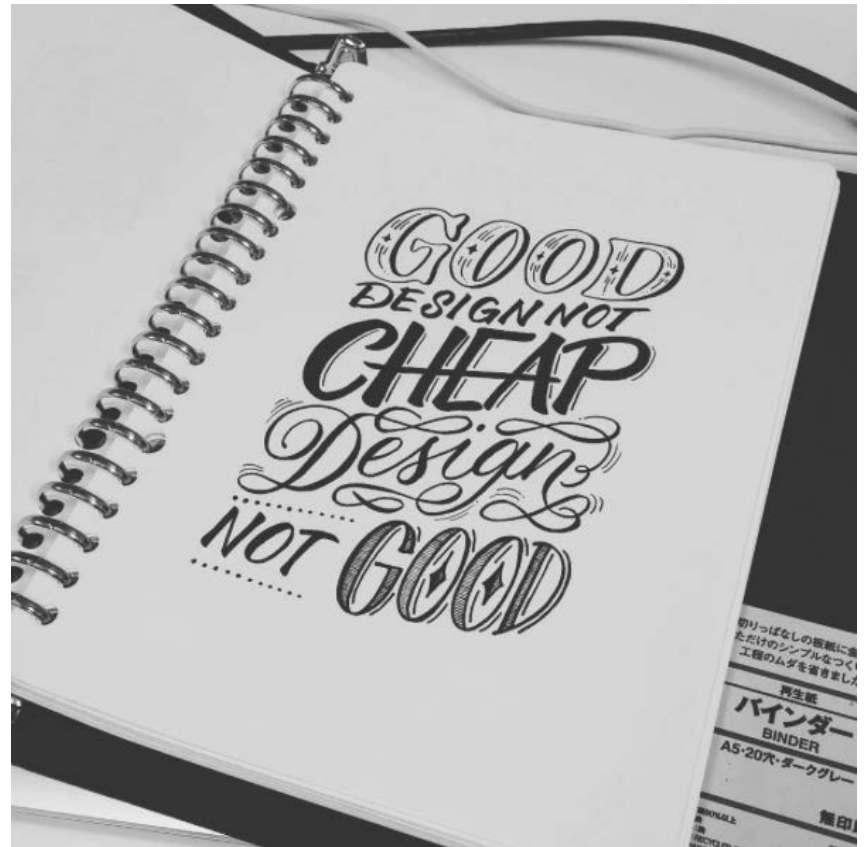 GOOD
DESIGN NOT
CHEAP
Design
NOT GOOD
切りっぱなしの板紙に金
ただけのシンプルなつくり
工程のムダを省きました
再生紙
バインダー
BINDER
A5・20穴・ダークグレー
無印
RECYCLED